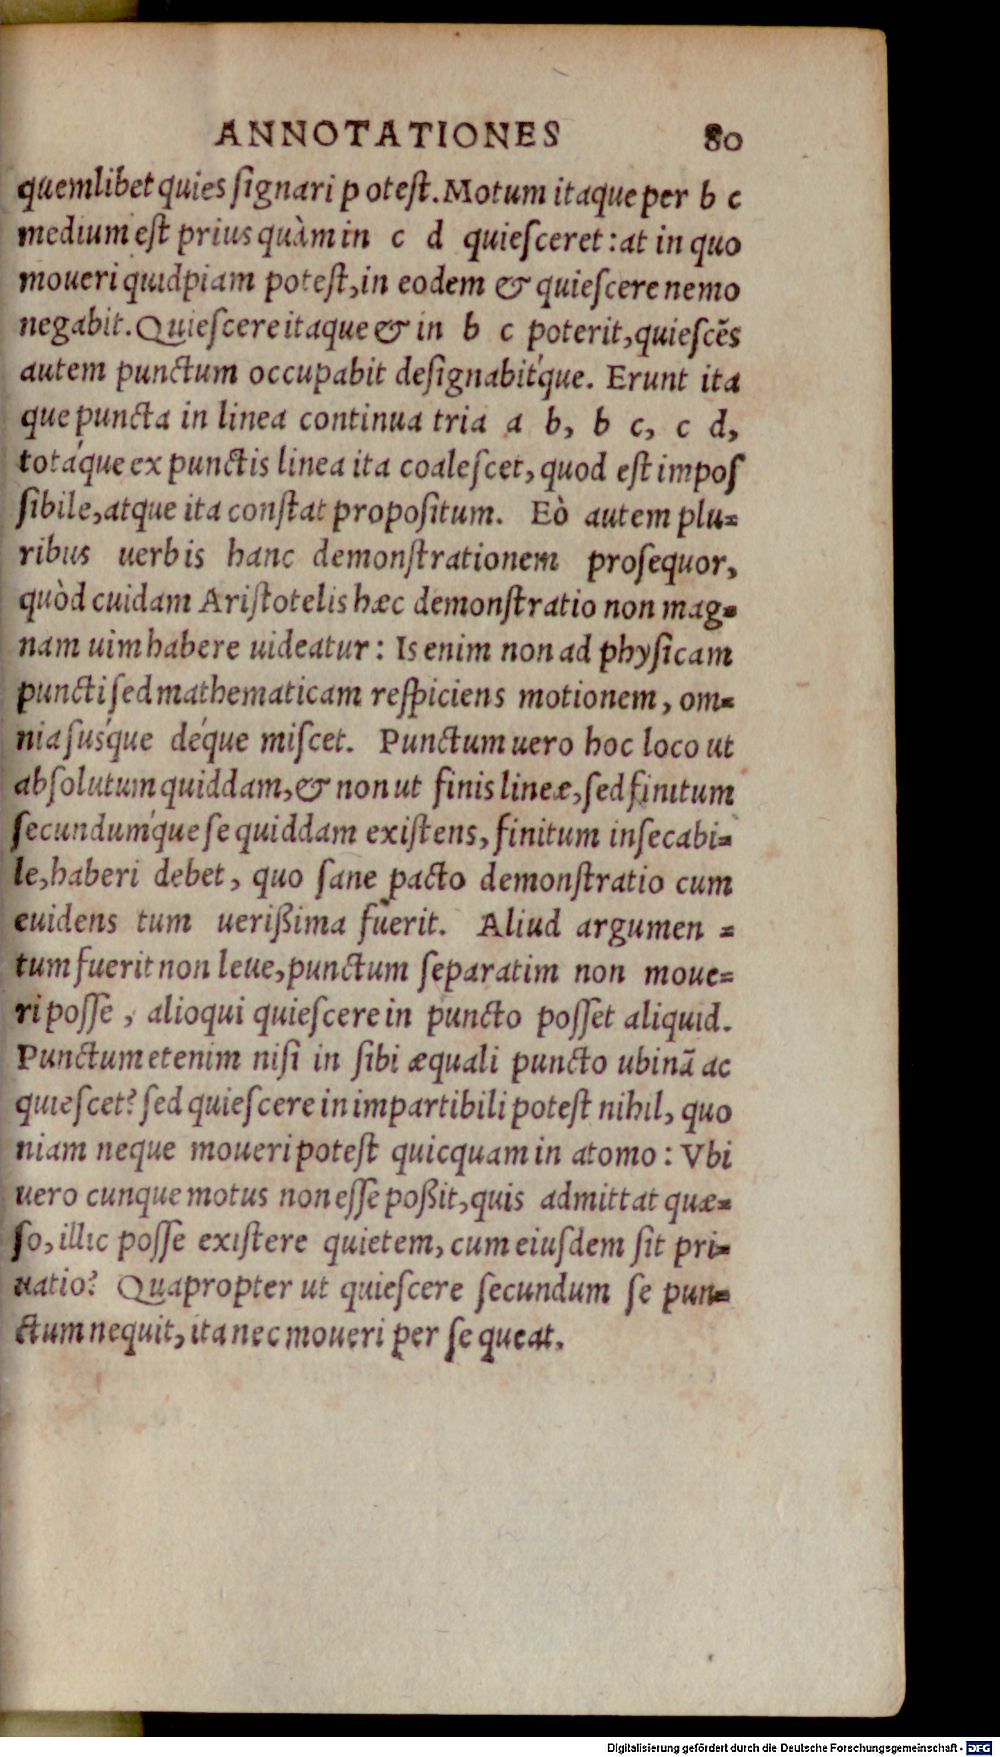 ANNOTATIONES 80
quemlibet quies ſignari poteſt. Motum itaque per b c
medium eſt prius quàm in c d quieſceret: at in quo
moueri quidpiam poteſt, in eodem & quieſcere nemo
negabit. Quieſcere itaque & in b c poterit, quieſcẽs
autem punctum occupabit deſignabit́que. Erunt ita
que puncta in linea continua tria a b, b c, c d,
totáque ex punctis linea ita coaleſcet, quod eſt impoſ
ſibile, atque ita conſtat propoſitum. Eò autem plu-
ribus uerbis hanc demonſtrationem proſequor,
quòd cuidam Ariſtotelis hæc demonſtratio non mag-
nam uim habere uideatur: Is enim non ad phyſicam
puncti ſed mathematicam reſpiciens motionem, om-
nia ſuś́que déque miſcet. Punctum uero hoc loco ut
abſolutum quiddam, & non ut finis lineæ, ſed finitum
ſecundum´que ſe quiddam exiſtens, finitum inſecabi-
le, haberi debet, quo ſane pacto demonſtratio cum
euidens tum uerißima fuerit. Aliud argumen-
tum fuerit non leue, punctum ſeparatim non moue-
ri poſſe, alioqui quieſcere in puncto poſſet aliquid.
Punctum etenim niſi in ſibi æquali puncto ubinã ac
quieſcet? ſed quieſcere in impartibili poteſt nihil, quo
niam neque moueri poteſt quicquam in atomo: Vbi
uero cunque motus non eſſe poßit, quis admittat quæ-
ſo, illic poſſe exiſtere quietem, cum eiuſdem ſit pri-
uatio? Quapropter ut quieſcere ſecundum ſe pun-
ctum nequit, ita nec moueri per ſe queat.
Digitalisierung gefördert durch die Deutsche Forschungsgemeinschaft - DFG